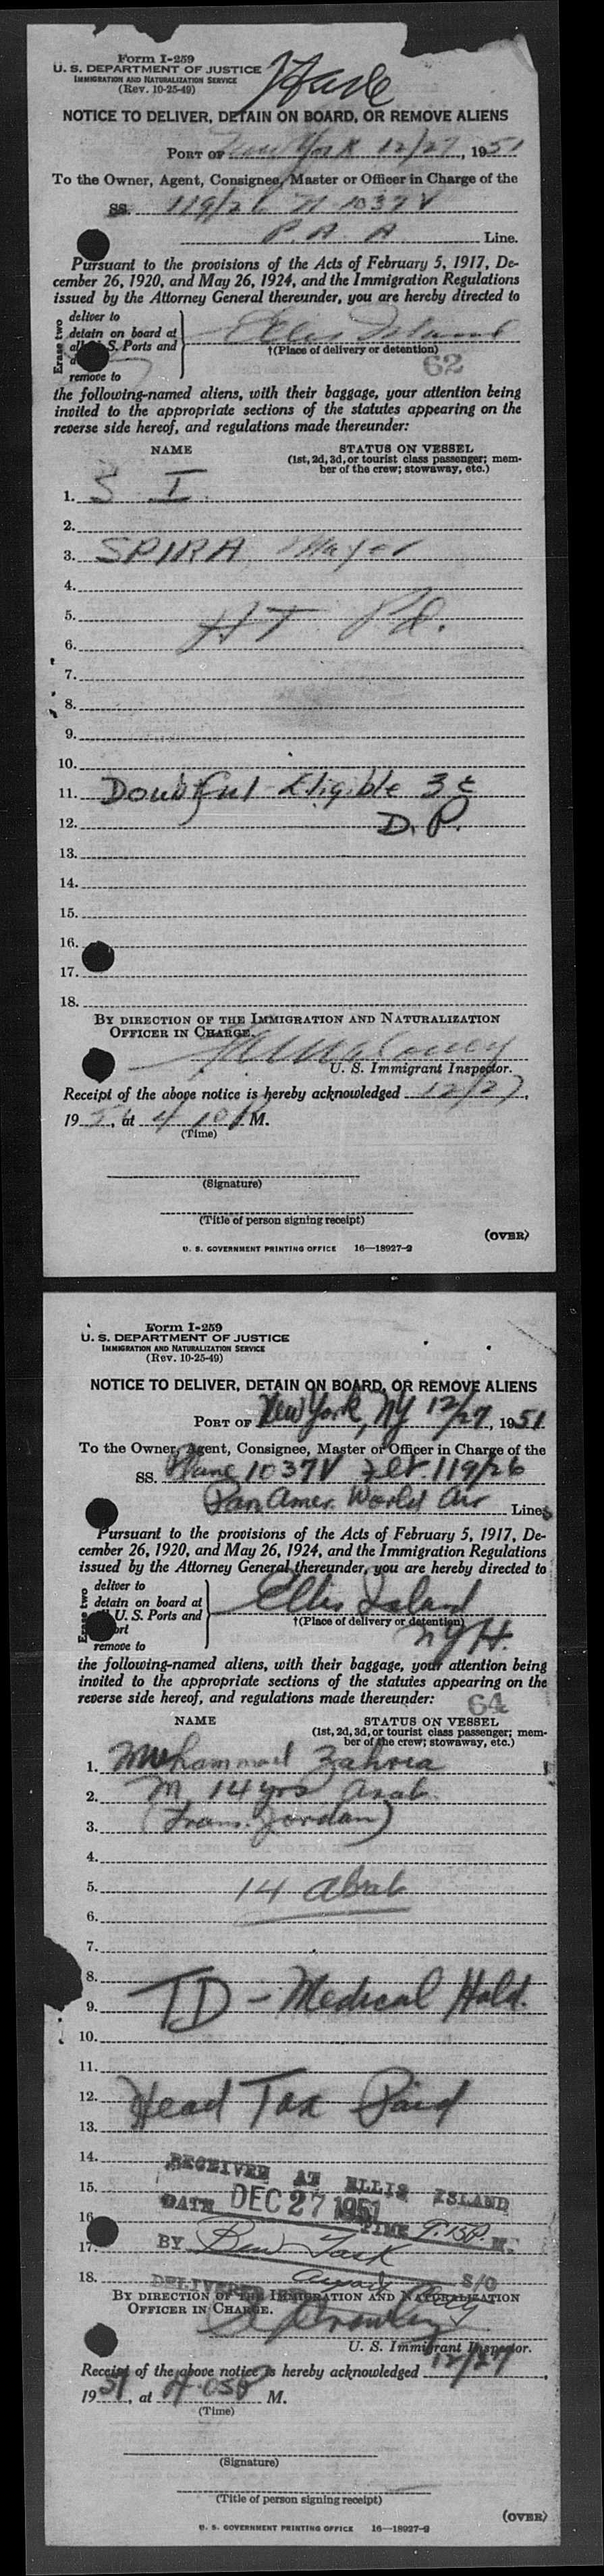 Form I-259
U. S. DEPARTMENT OF JUSTICE
IMMIGRATION AND NATURALIZATION SERVICE
(Rev. 10-25-49)
NOTICE TO DELIVER, DETAIN ON BOARD, OR REMOVE ALIENS
PORT OF New York 12/27, 1951
To the Owner, Agent, Consignee, Master or Officer in Charge of the
SS. 119/26 N 1037V
P. A. A. Line.
Pursuant to the provisions of the Acts of February 5, 1917, De-
cember 26, 1920, and May 26, 1924, and the Immigration Regulations
issued by the Attorney General thereunder, you are hereby directed to
Erase two
deliver to
detain on board at
all U. S. Ports and
remove to
Ellis Island
†(Place of delivery or detention)
62
the following-named aliens, with their baggage, your attention being
invited to the appropriate sections of the statutes appearing on the
reverse side hereof, and regulations made thereunder:
NAME STATUS ON VESSEL
(1st, 2d, 3d, or tourist class passenger; mem-
ber of the crew; stowaway, etc.)
1. S I
2.
3. SPIRA, Mayer
4.
5. HT Pd.
6.
7.
8.
9.
10.
11. Doubtful Eligible 3c
12. D. P.
13.
14.
15.
16.
17.
18.
BY DIRECTION OF THE IMMIGRATION AND NATURALIZATION
OFFICER IN CHARGE.
U. S. Immigrant Inspector.
Receipt of the above notice is hereby acknowledged 12/27,
19 51, at 4 10 P M.
(Time)
(Signature)
(Title of person signing receipt)
(OVER)
U. S. GOVERNMENT PRINTING OFFICE 16—18927-2
Form I-259
U. S. DEPARTMENT OF JUSTICE
IMMIGRATION AND NATURALIZATION SERVICE
(Rev. 10-25-49)
NOTICE TO DELIVER, DETAIN ON BOARD, OR REMOVE ALIENS
PORT OF New York, NY 12/27, 1951
To the Owner, Agent, Consignee, Master or Officer in Charge of the
SS. Plane 1037V Flt 119/26
Pan Amer. World Air Lines
Pursuant to the provisions of the Acts of February 5, 1917, De-
cember 26, 1920, and May 26, 1924, and the Immigration Regulations
issued by the Attorney General thereunder, you are hereby directed to
Erase two
deliver to
detain on board at
U. S. Ports and
remove to
Ellis Island
†(Place of delivery or detention)
NYH.
the following-named aliens, with their baggage, your attention being
invited to the appropriate sections of the statutes appearing on the
reverse side hereof, and regulations made thereunder: 64
NAME STATUS ON VESSEL
(1st, 2d, 3d, or tourist class passenger; mem-
ber of the crew; stowaway, etc.)
1. Muhammad Zahria
2. M 14 yrs Arab
3. (Trans. Jordan)
4.
5. 14 Arab
6.
7.
8. TD - Medical Hold.
9.
10.
11.
12. Head Tax Paid
13.
14.
RECEIVED AT ELLIS ISLAND
15.
DATE DEC 27 1951
16. TIME 7:15P. M.
17. BY Ben Task
18. S/O
DELIVERED
BY DIRECTION OF THE IMMIGRATION AND NATURALIZATION
OFFICER IN CHARGE.
U. S. Immigrant Inspector.
Receipt of the above notice is hereby acknowledged 12/27,
19 51, at 4:05P M.
(Time)
(Signature)
(Title of person signing receipt)
(OVER)
U. S. GOVERNMENT PRINTING OFFICE 16—18927-2